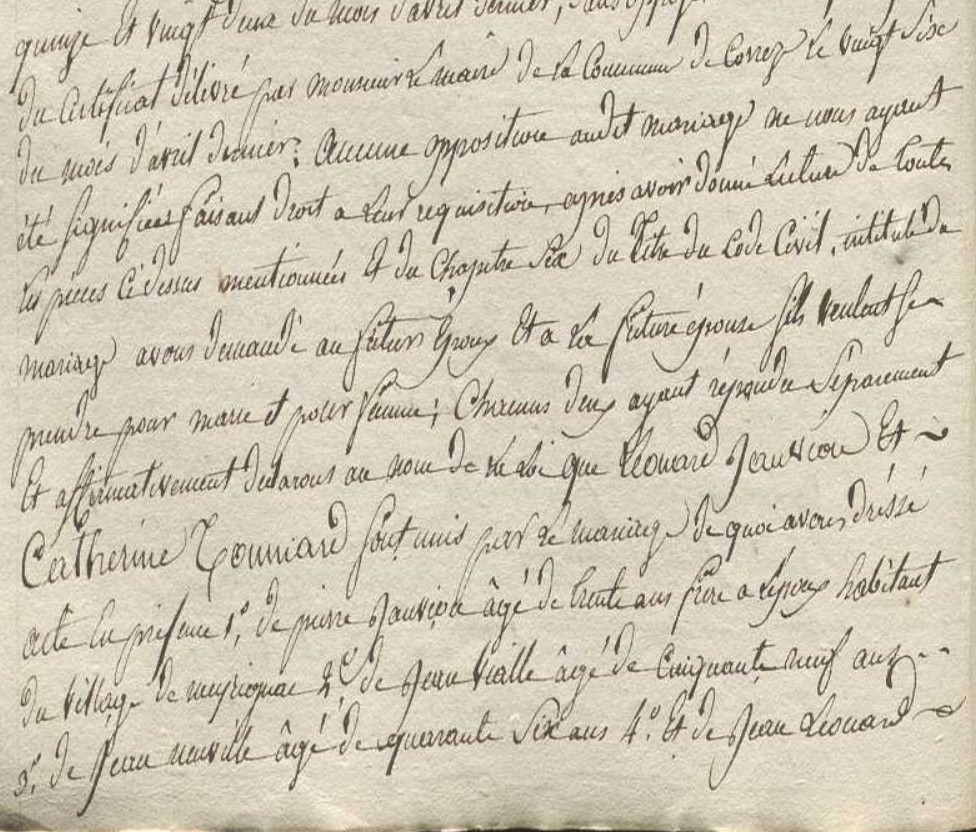 quinze et vingt deux du mois d'avril dernier, sans
du certificat délivré par monsieur le maire de la Commune de Correze le vingt six
du mois d'avril dernier: Aucune opposition audit mariage ne nous ayant
été signifiée faisant droit a leur requisition, après avoir donné lecture de toutes
les pieces ci dessus mentionnées Et du Chapitre Six du titre du Code Civil, intitulé du
mariage avons demandé au futur Epoux Et a la future épouse s'ils veulent se
prendre pour marie et pour femme; Chacuns deux ayant répondu Séparément
Et affirmativement declarons au nom de la Loi que Léonard Jauvion Et
Catherine sont unis par le mariage de quoi avons dréssé
acte En présence 1.° de pierre Jauvion âgé de trente ans frère a L'époux habitant
du village de meyrignac 2.° de Jean Vialle âgé de Cinquante neuf ans
3.° de Jean neuville âgé de quarante Six ans 4.° Et de Jean Léonard